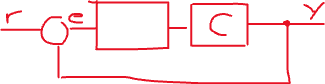 r e C y